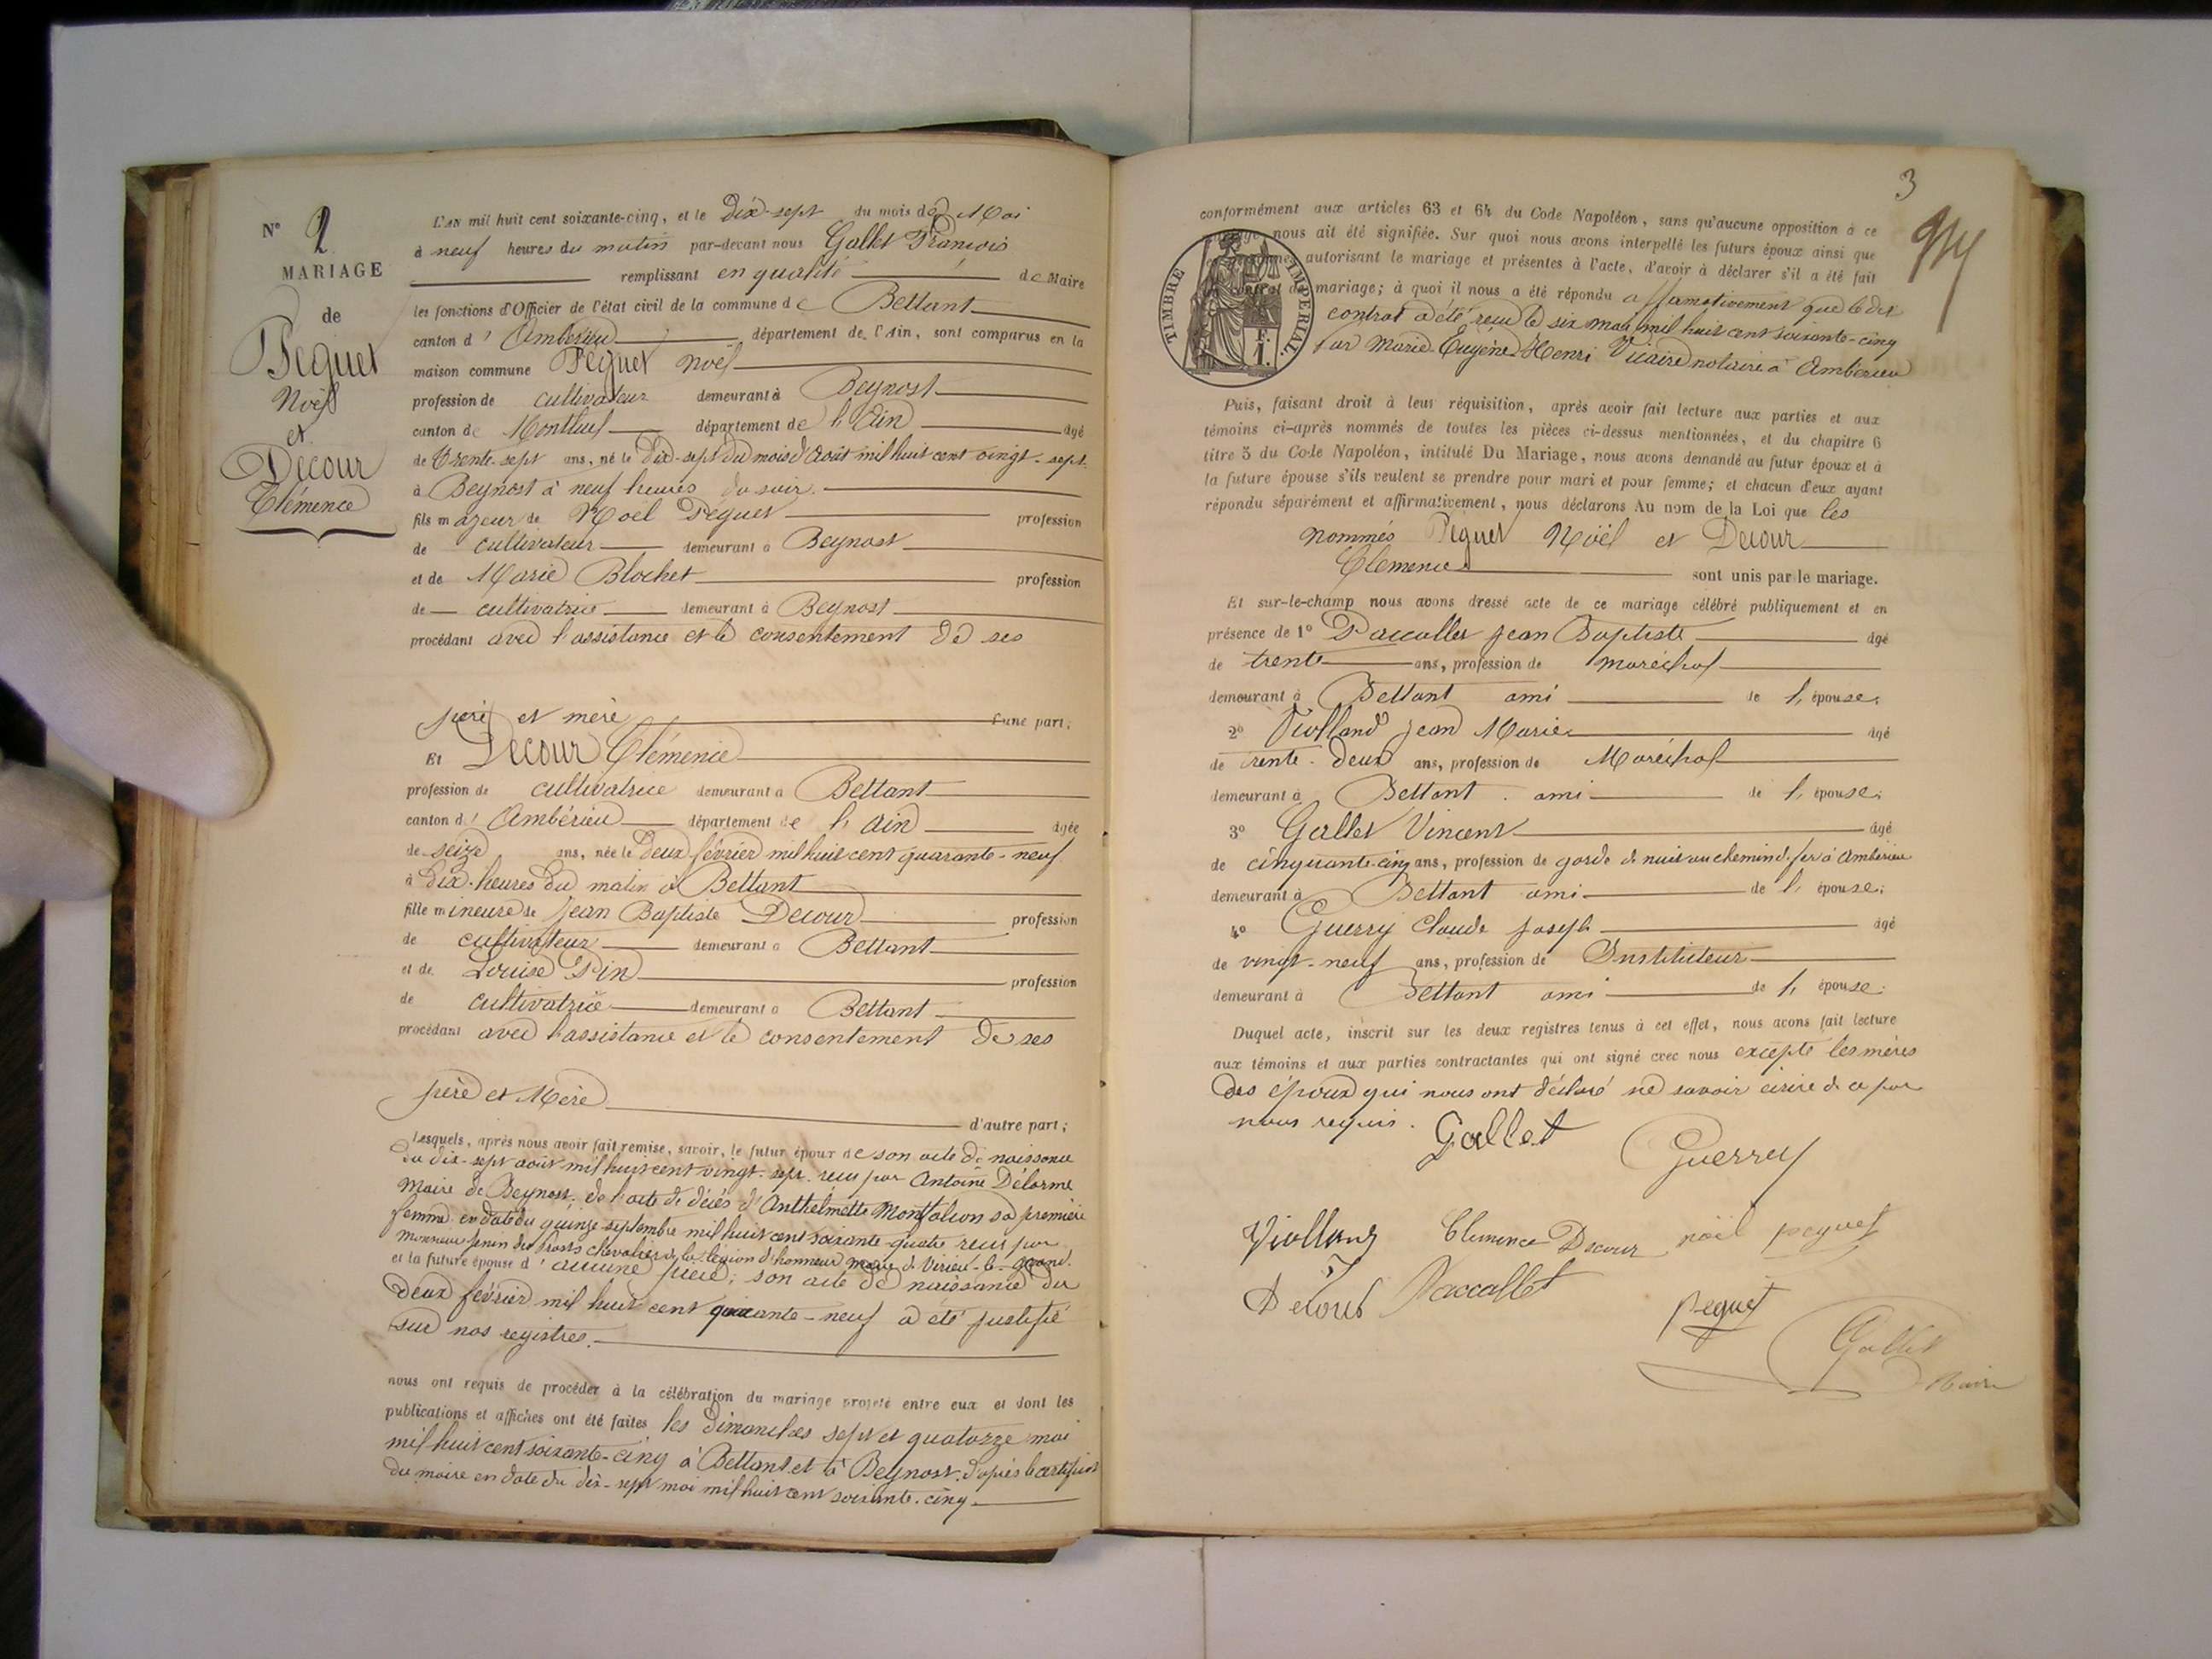 N° 2
MARIAGE
de
Peguet
Noël
et
Decour
Clémence
L'AN mil huit cent soixante-cinq, et le Dix-sept du mois de Mai
à neuf heures du matin par-devant nous Gallet François
remplissant en qualité de Maire
les fonctions d'Officier de l'état civil de la commune de Bettant
canton d' Ambérieu département de l'Ain, sont comparus en la
maison commune Péguet Noël
profession de cultivateur demeurant à Beynost
canton de Montluel département de l'Ain âgé
de Trente-sept ans, né le Dix-sept du mois d'Août mil huit cent vingt-sept
à Beynost à neuf heures du soir.
fils majeur de Noël Péguet profession
de cultivateur demeurant à Beynost
et de Marie Blochet profession
de cultivatrice demeurant à Beynost
procédant avec l'assistance et le consentement de ses
père et mère d'une part;
Et Decour Clémence
profession de cultivatrice demeurant à Bettant
canton d' Ambérieu département de l'Ain âgée
de seize ans, née le Deux février mil huit cent quarante-neuf
à Dix heures du matin à Bettant
fille mineure de Jean Baptiste Decour profession
de cultivateur demeurant à Bettant
et de Louise Pin profession
de cultivatrice demeurant à Bettant
procédant avec l'assistance et le consentement de ses
père et Mère
d'autre part;
Lesquels, après nous avoir fait remise, savoir, le futur époux de son acte de naissance
du dix-sept août mil huit cent vingt-sept reçu par Antoine Delorme
Maire de Beynost. de l'acte de décès d'Anthelmette Montalion sa première
femme en date du quinze septembre mil huit cent soixante-quatre reçu par
Monsieur chevalier de la légion d'honneur maire de Virieu-le-grand.
et la future épouse d' aucune pièce; son acte de naissance du
Deux février mil huit cent quarante-neuf a été justifié
sur nos registres.
nous ont requis de procéder à la célébration du mariage projeté entre eux et dont les
publications et affiches ont été faites les Dimanches sept et quatorze mai
mil huit cent soixante-cinq à Bettant et à Beynost. d'après le certificat
du maire en date du dix-sept mai mil huit cent soixante-cinq
3
conformément aux articles 63 et 64 du Code Napoléon, sans qu'aucune opposition à ce
mariage nous ait été signifiée. Sur quoi nous avons interpellé les futurs époux ainsi que
autorisant le mariage et présentes à l'acte, d'avoir à déclarer s'il a été fait
contrat de mariage; à quoi il nous a été répondu affirmativement que le dit
contrat a été reçu le six mai mil huit cent soixante-cinq
par Marie Eugène Henri Vicaire notaire à Ambérieu
TIMBRE IMPERIAL.
1 F.
Puis, faisant droit à leur réquisition, après avoir fait lecture aux parties et aux
témoins ci-après nommés de toutes les pièces ci-dessus mentionnées, et du chapitre 6
titre 5 du Code Napoléon, intitulé Du Mariage, nous avons demandé au futur époux et à
la future épouse s'ils veulent se prendre pour mari et pour femme; et chacun d'eux ayant
répondu séparément et affirmativement, nous déclarons Au nom de la Loi que les
nommés Péguet Noël et Decour
Clémence sont unis par le mariage.
Et sur-le-champ nous avons dressé acte de ce mariage célébré publiquement et en
présence de 1° Paccallet Jean Baptiste âgé
de trente ans, profession de maréchal
demeurant à Bettant ami de l'épouse;
2° Violland Jean Marie âgé
de trente-deux ans, profession de Maréchal
demeurant à Bettant. ami de l'épouse;
3° Gallet Vincent âgé
de cinquante-cinq ans, profession de garde de nuit au chemin de fer à Ambérieu
demeurant à Bettant ami de l'épouse;
4° Guerry Claude Joseph âgé
de vingt-neuf ans, profession de Instituteur
demeurant à Bettant ami de l'épouse.
Duquel acte, inscrit sur les deux registres tenus à cet effet, nous avons fait lecture
aux témoins et aux parties contractantes qui ont signé avec nous excepté les mères
des époux qui nous ont déclaré ne savoir écrire de ce par
nous requis. Gallet Guerry
Violland Clemence Decour noël peguet
Decour Paccallet peguet
Gallet
Maire